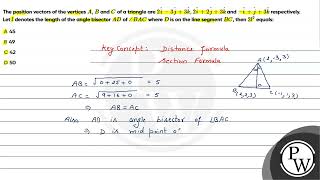 The position vectors of the vertices A, B and C of a triangle are 2i - 3j + 3k, 2i + 2j + 3k and -i + j + 3k respectively.
Let l denotes the length of the angle bisector AD of ∠BAC where D is on the line segment BC, then 2l² equals:
A 45
B 49
C 42
D 50
Key Concept: Distance formula
Section formula
AB = √0+25+0 = 5
AC = √9+16+0 = 5
⇒ AB = AC
Also AD is angle bisector of ∠BAC
⇒ D is mid point o
A(2,-3,3)
B(2,2,3)
D
C(-1,1,3)
PW
PW